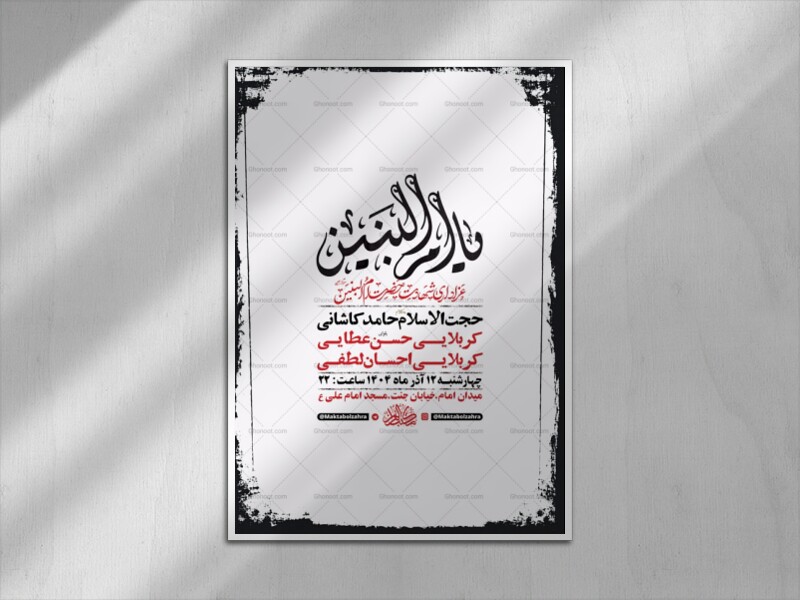 یا ام البنین
عزاداری شهادت حضرت ام البنین
حجت الاسلام حامد کاشانی
کربلایی حسن عطایی
کربلایی احسان لطفی
چهارشنبه ۱۲ آذر ماه ۱۴۰۴ ساعت: ۲۲
میدان امام.خیابان جنت.مسجد امام علی ع
@Maktabolzahra @Maktabolzahra
Ghonoot.com